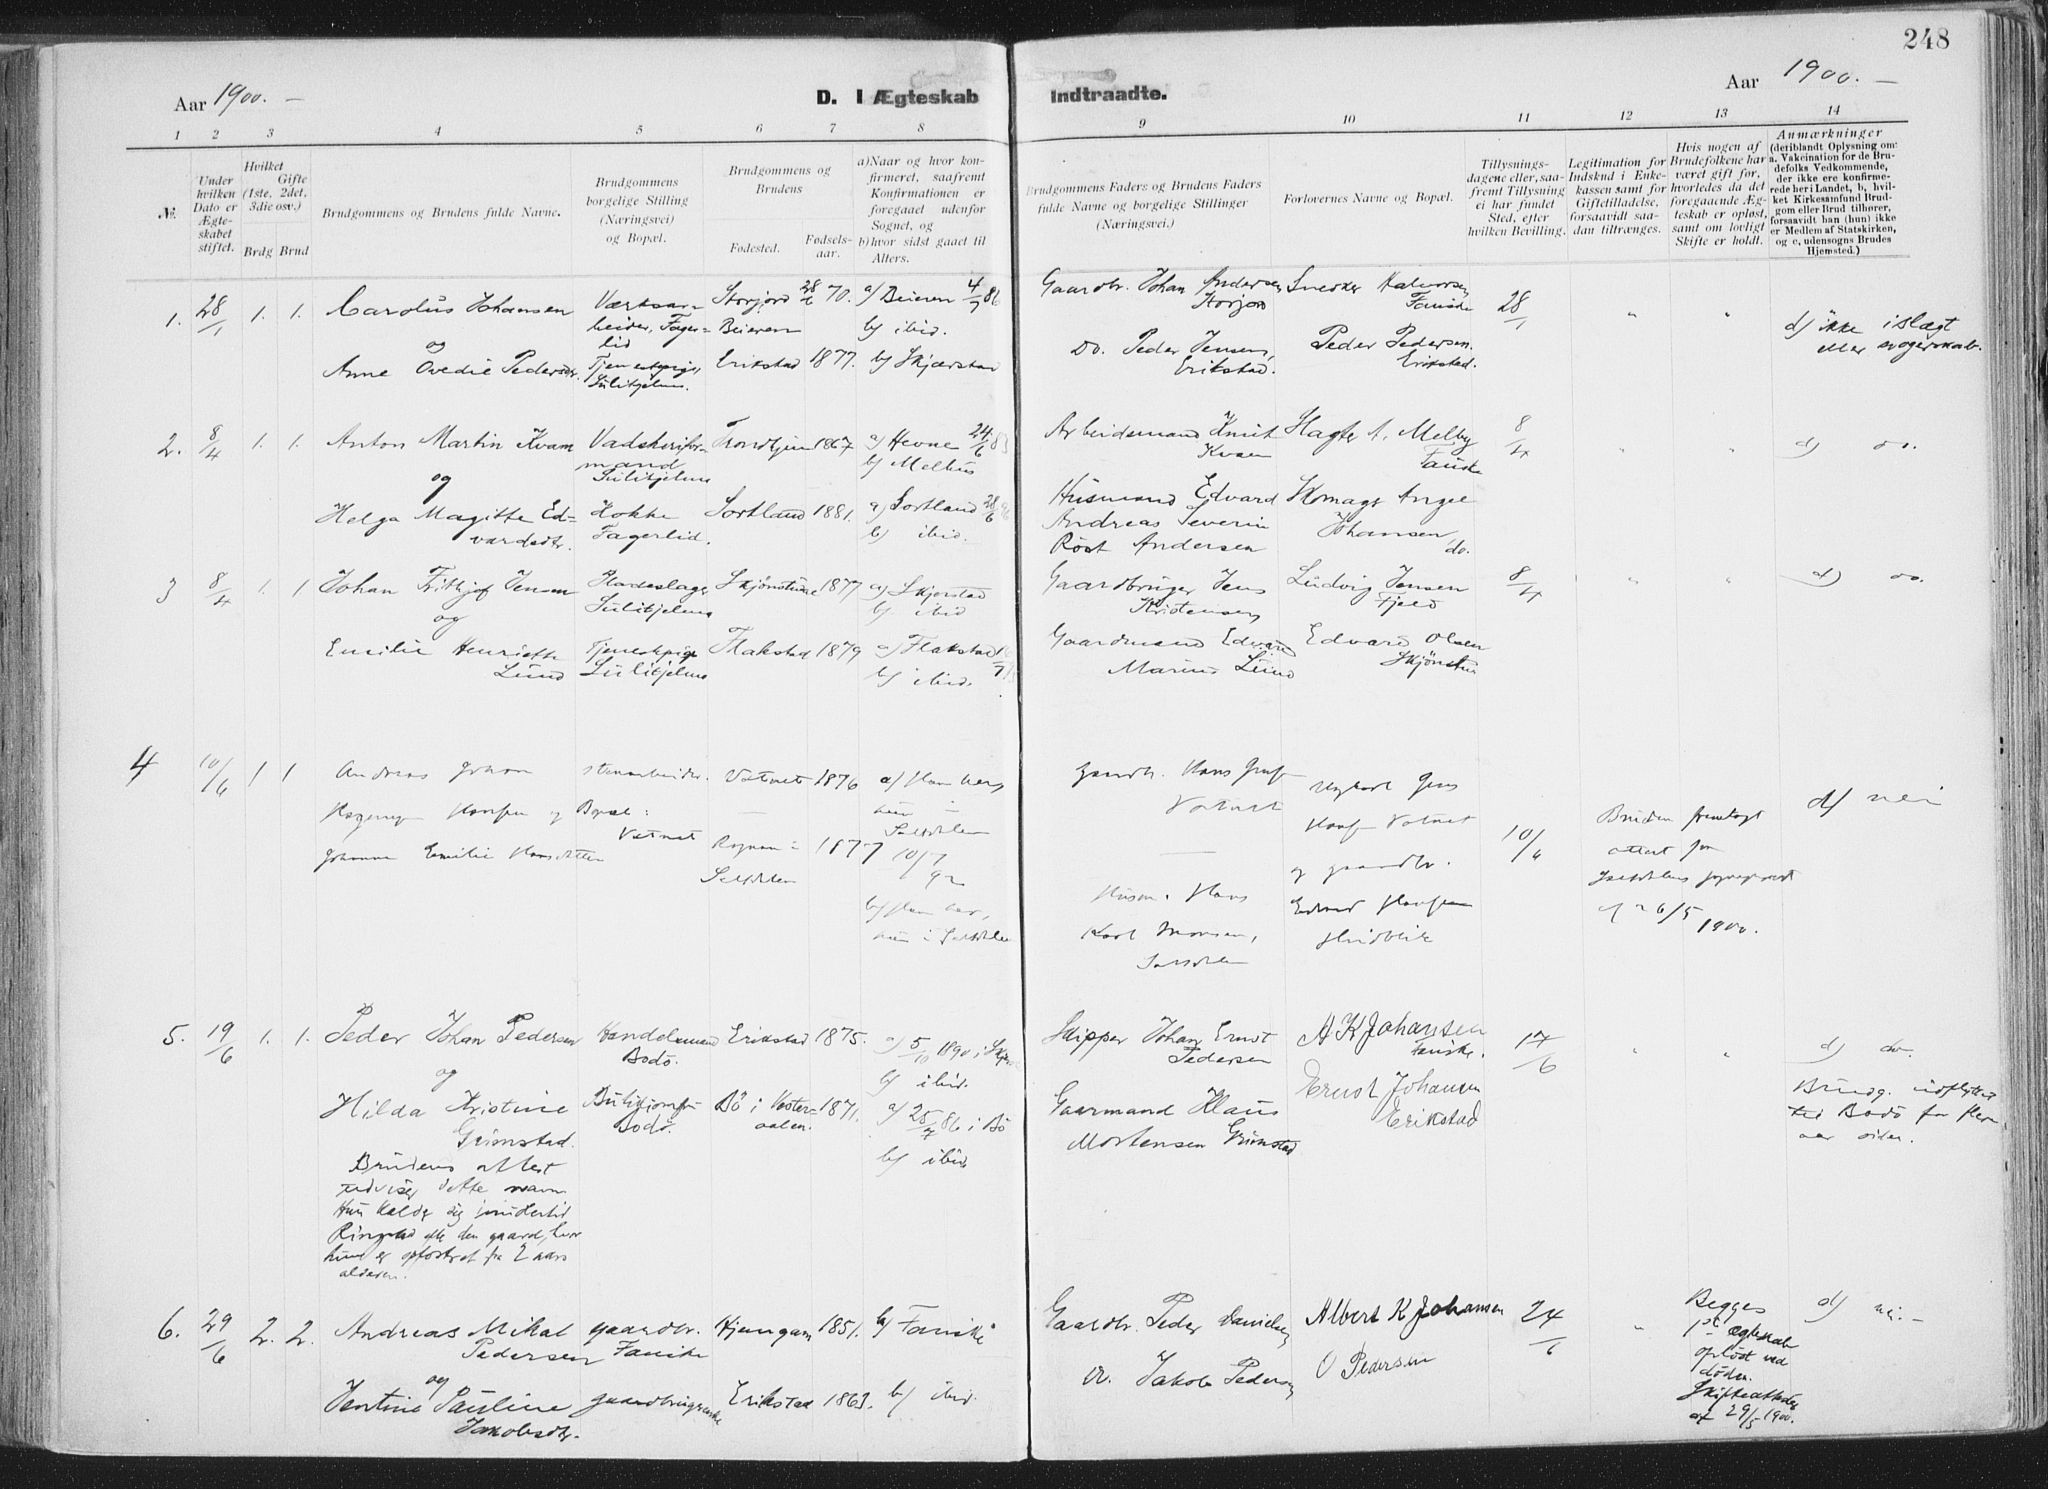 248
Aar 1900. —
D. I Ægteskab Indtraadte.
Aar 1900. —
1 2 3 4 5 6 7 8 9 10 11 12 13 14
№.
Under hvilken Dato er Ægteskabet stiftet.
Hvilket Gifte (1ste, 2det, 3die osv.)
Brdg Brud
Brudgommens og Brudens fulde Navne.
Brudgommens borgelige Stilling (Næringsvei) og Bopæl.
Brudgommens og Brudens
Fødested. Fødselsaar.
a) Naar og hvor konfirmeret, saafremt Konfirmationen er foregaaet udenfor Sognet, og
b) hvor sidst gaaet til Alters.
Brudgommens Faders og Brudens Faders fulde Navne og borgelige Stillinger (Næringsvei.)
Forlovernes Navne og Bopæl.
Tillysningsdagene eller, saafremt Tillysning ei har fundet Sted, efter hvilken Bevilling.
Legitimation for Indskud i Enkekassen samt for Giftetilladelse, forsaavidt saadan tiltrænges.
Hvis nogen af Brudefolkene har været gift før, hvorledes da det foregaaende Ægteskab er opløst, samt om lovligt Skifte er holdt.
Anmærkninger (deriblandt Oplysning om: a. Vakcination for de Brudefolks Vedkommende, der ikke ere konfirmerede her i Landet, b, hvilket Kirkesamfund Brudgom eller Brud tilhører, forsaavidt han (hun) ikke er Medlem af Statskirken, og c, udensogns Brudes Hjemsted.)
1. 28/1 1. 1. Carolus Johansen
og
Anne Ovedie Pedersdr.
Værksarbeider, Fagerlid
Tjenestepige, Sulitjelma.
Storjord 28/6 70.
Beieren
Erikstad 1877.
a) Beieren 4/7 86
b) ibid.
b) Skjerstad
Gaardbr. Johan Andersen Storjord
Do. Peder Jensen, Erikstad.
Snedker Halvorsen Fauske
Peder Pedersen. Erikstad.
28/1 " "
d) ikke i slægt eller svogerskab.
2. 8/4 1. 1. Anton Martin Kvam
og
Helga Magitte Edvardsdtr.
Sulitjelma
Kokke Fagerlid.
Trondhjem 1867
Sortland 1881.
a) Hevne 24/6 83
b) Melhus
a) Sortland 28/6 96
b) ibid.
Arbeidsmand Knut Kvam
Husmand Edvard Andreas Severin Röst Andersen
Melby Fauske
Johansen do.
8/4 " "
d) do.
3 8/4 1. 1 Johan Frithjof Jensen
og
Emilie Henriette Lund
Pladeslager Sulitjelma
Tjenestepige Sulitjelma
Skjönstue 1877
Flakstad 1879
a) Skjerstad
b) ibid
a) Flakstad
b) ibid.
Gaardbruger Jens Kristensen
Gaardmand Edvard Marius Lund
Ludvig Jensen Fjeld
Edvard Olsen Skjönstu
8/4 " "
d) do.
4 10/6 1 1 Andreas Johan
Hansen og
Johanna Emilie Hansdatter
stenarbeider.
Bopæl: Vatnet
Vatnet 1876
Rognan i Saltdalen 1877
a) Han her,
hun i Saltdalen
10/7 92
b) Han her,
hun i Saltdalen
Gaardbr. Hans
Vatnet
Husm. Hans
Karl Monsen,
Saltdalen
Jens
Hansen Vatnet
og gaardbr.
Edvard Hansen
Hvidblik
10/6
Bruden fremlagt
attest fra
Saltdalens sogneprest
af 26/5 1900.
d) nei
5. 19/6 1. 1. Peder Johan Pedersen
og
Hilda Kristine Grimstad.
Brudens attest udviser dette navn.
Hun kalder sig imidlertid
Ringstad efter den gaard, hvor
hun er opfostret fra 2 aars
alderen.
Handelsmand Bodö.
Bodö.
Erikstad 1875.
Bö i Vesteraalen. 1871.
a) 5/10 1890 i Skjer
b) ibid.
a) 25/7 86 i Bö
b) ibid
Skipper Johan Ernst Pedersen
Gaarmand Klaus Mortensen Grimstad
A K Johansen Fauske.
Ernst Johansen Erikstad
17/6 " "
d) do.
Brudg. indflyttet
ted Bodö for flere
aar siden.
6. 29/6 2. 2. Andreas Mikal Pedersen
og
Jentine Pauline Jakobsdtr.
gaardbr. Fauske
gaardbrugerenke
Hjemgam 1851.
Erikstad 1863.
b) Fauske
b) ibid.
Gaardbr. Peder Danielsen
Do. Jakob Pedersen
Albert K Johansen
O Pedersen
24/6 "
Begges
1ste ægteskab
oplöst ved
döden.
Skifteattester
af 29/5 1900.
d) nei. —